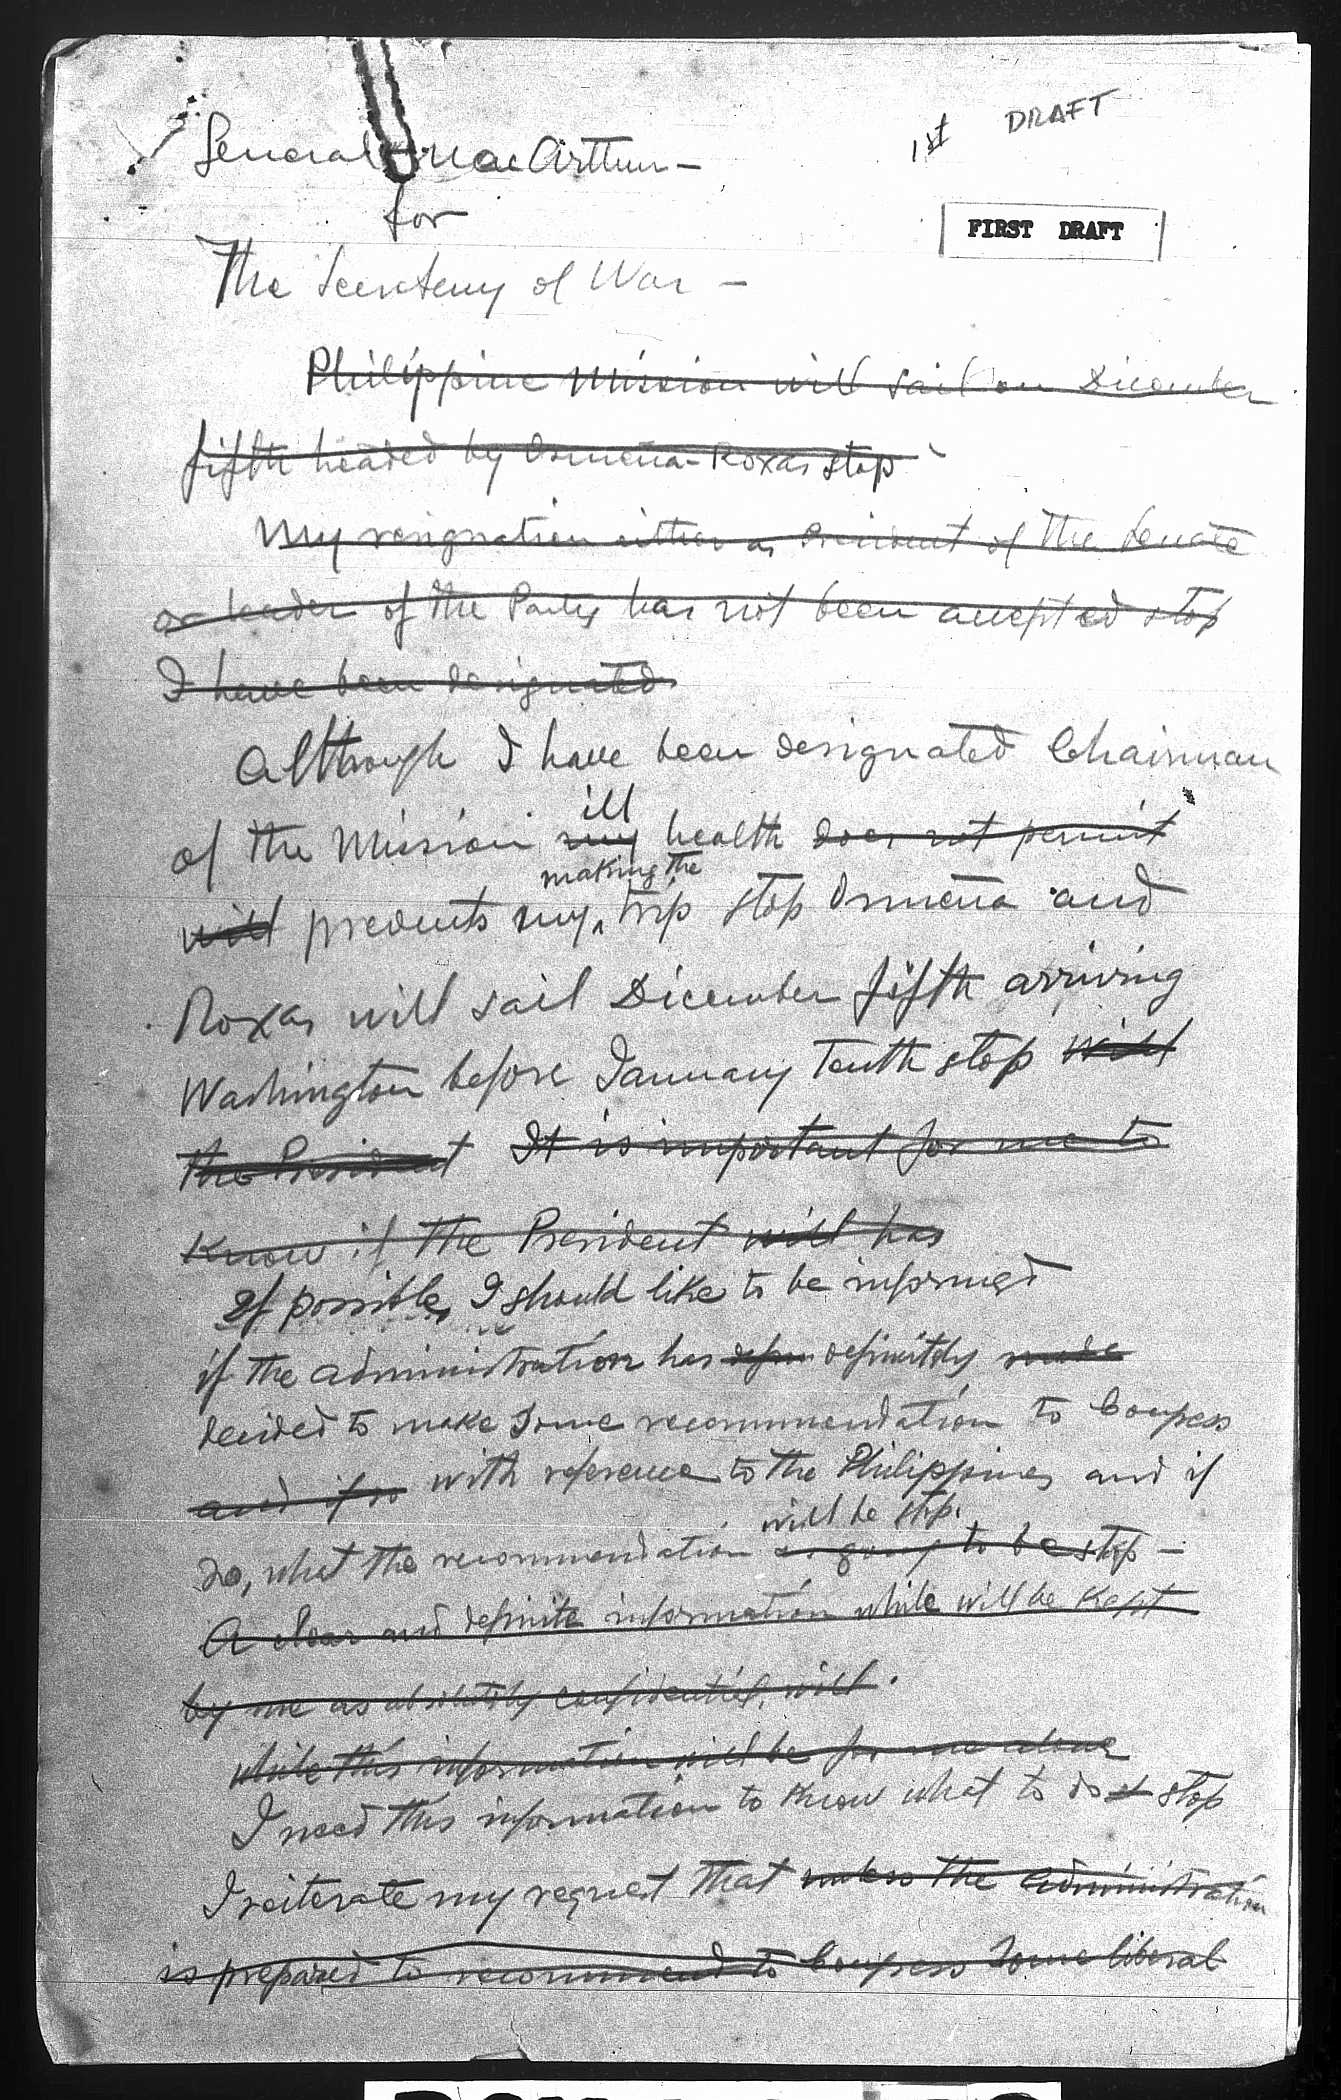 1st DRAFT
General MacArthur —
for
FIRST DRAFT
The Secretary of War —
Philippine Mission will sail on December
fifth headed by Osmeña-Roxas stop
My resignation either as President of the Senate
or leader of the Party has not been accepted stop
I have been designated
Although I have been designated Chairman
ill
of the Mission my health does not permit
making the
will prevents my trip stop Osmeña and
Roxas will sail December fifth arriving
Washington before January Tenth stop will
the President It is important for me to
know if the President will has
If possible, I should like to be informed
if the administration has definitely made
decided to make some recommendation to Congress
and if so with reference to the Philippines and if
will be stop.
so, what the recommendation is going to be stop —
A clear and definite information while will be kept
by me as absolutely confidential, will.
while this information will be for me alone
I need this information to know what to do stop
I reiterate my request that unless the administration
is prepared to recommend to Congress some liberal